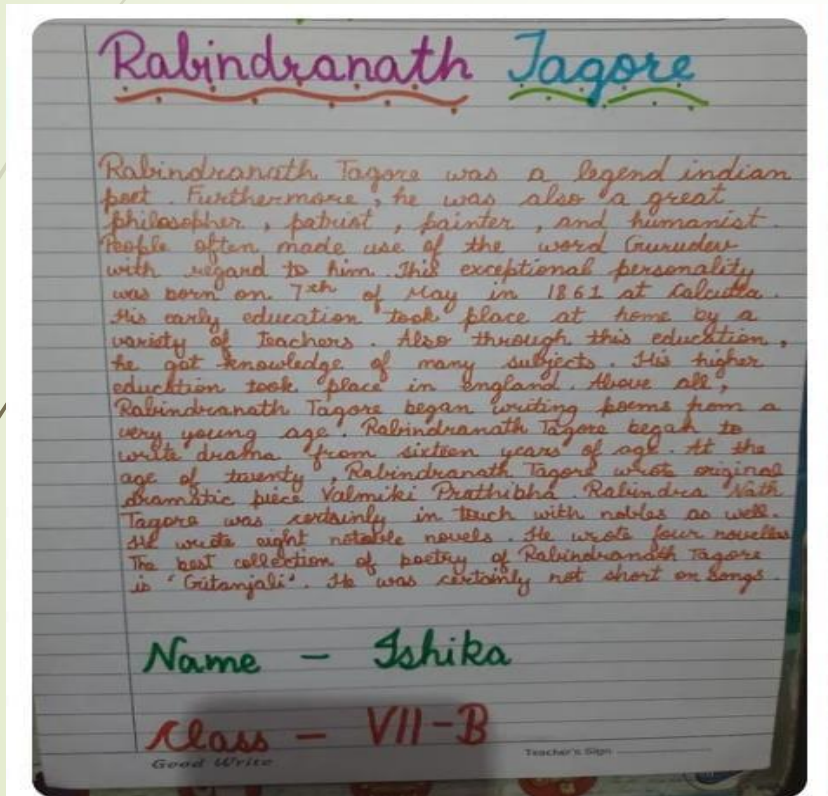 Rabindranath Tagore
Rabindranath Tagore was a legend indian
poet. Furthermore, he was also a great
philosopher, patriot, painter, and humanist.
People often made use of the word Gurudev
with regard to him. This exceptional personality
was born on 7th of May in 1861 at Calcutta.
His early education took place at home by a
variety of teachers. Also through this education,
he got knowledge of many subjects. His higher
eduction took place in england. Above all,
Rabindranath Tagore began writing poems from a
very young age. Rabindranath Tagore began to
write drama from sixteen years of age. At the
age of twenty, Rabindranath Tagore wrote original
dramatic piece Valmiki Prathibha. Rabindra Nath
Tagore was certainly in touch with nobles as well.
He wrote eight notable novels. He wrote four novellas
The best collection of poetry of Rabindranath Tagore
is "Gitanjali". He was certainly not short on songs.
Name - Ishika
Class - VII-B
Good Write
Teacher's Sign